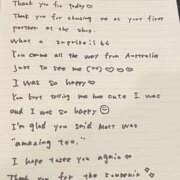 Thank you for today♡
Thank you for choosing me as your first
partner at the shop.
What a surprise!! 66
You came all the way from Australia
Just to see me (^^) ♡♡♡
I was so happy♡
You kept telling me how cute I was
and I was so happy ☺
I'm glad you said that was
"amazing too."
I hope to see you again♡
Thank you for the souvenir